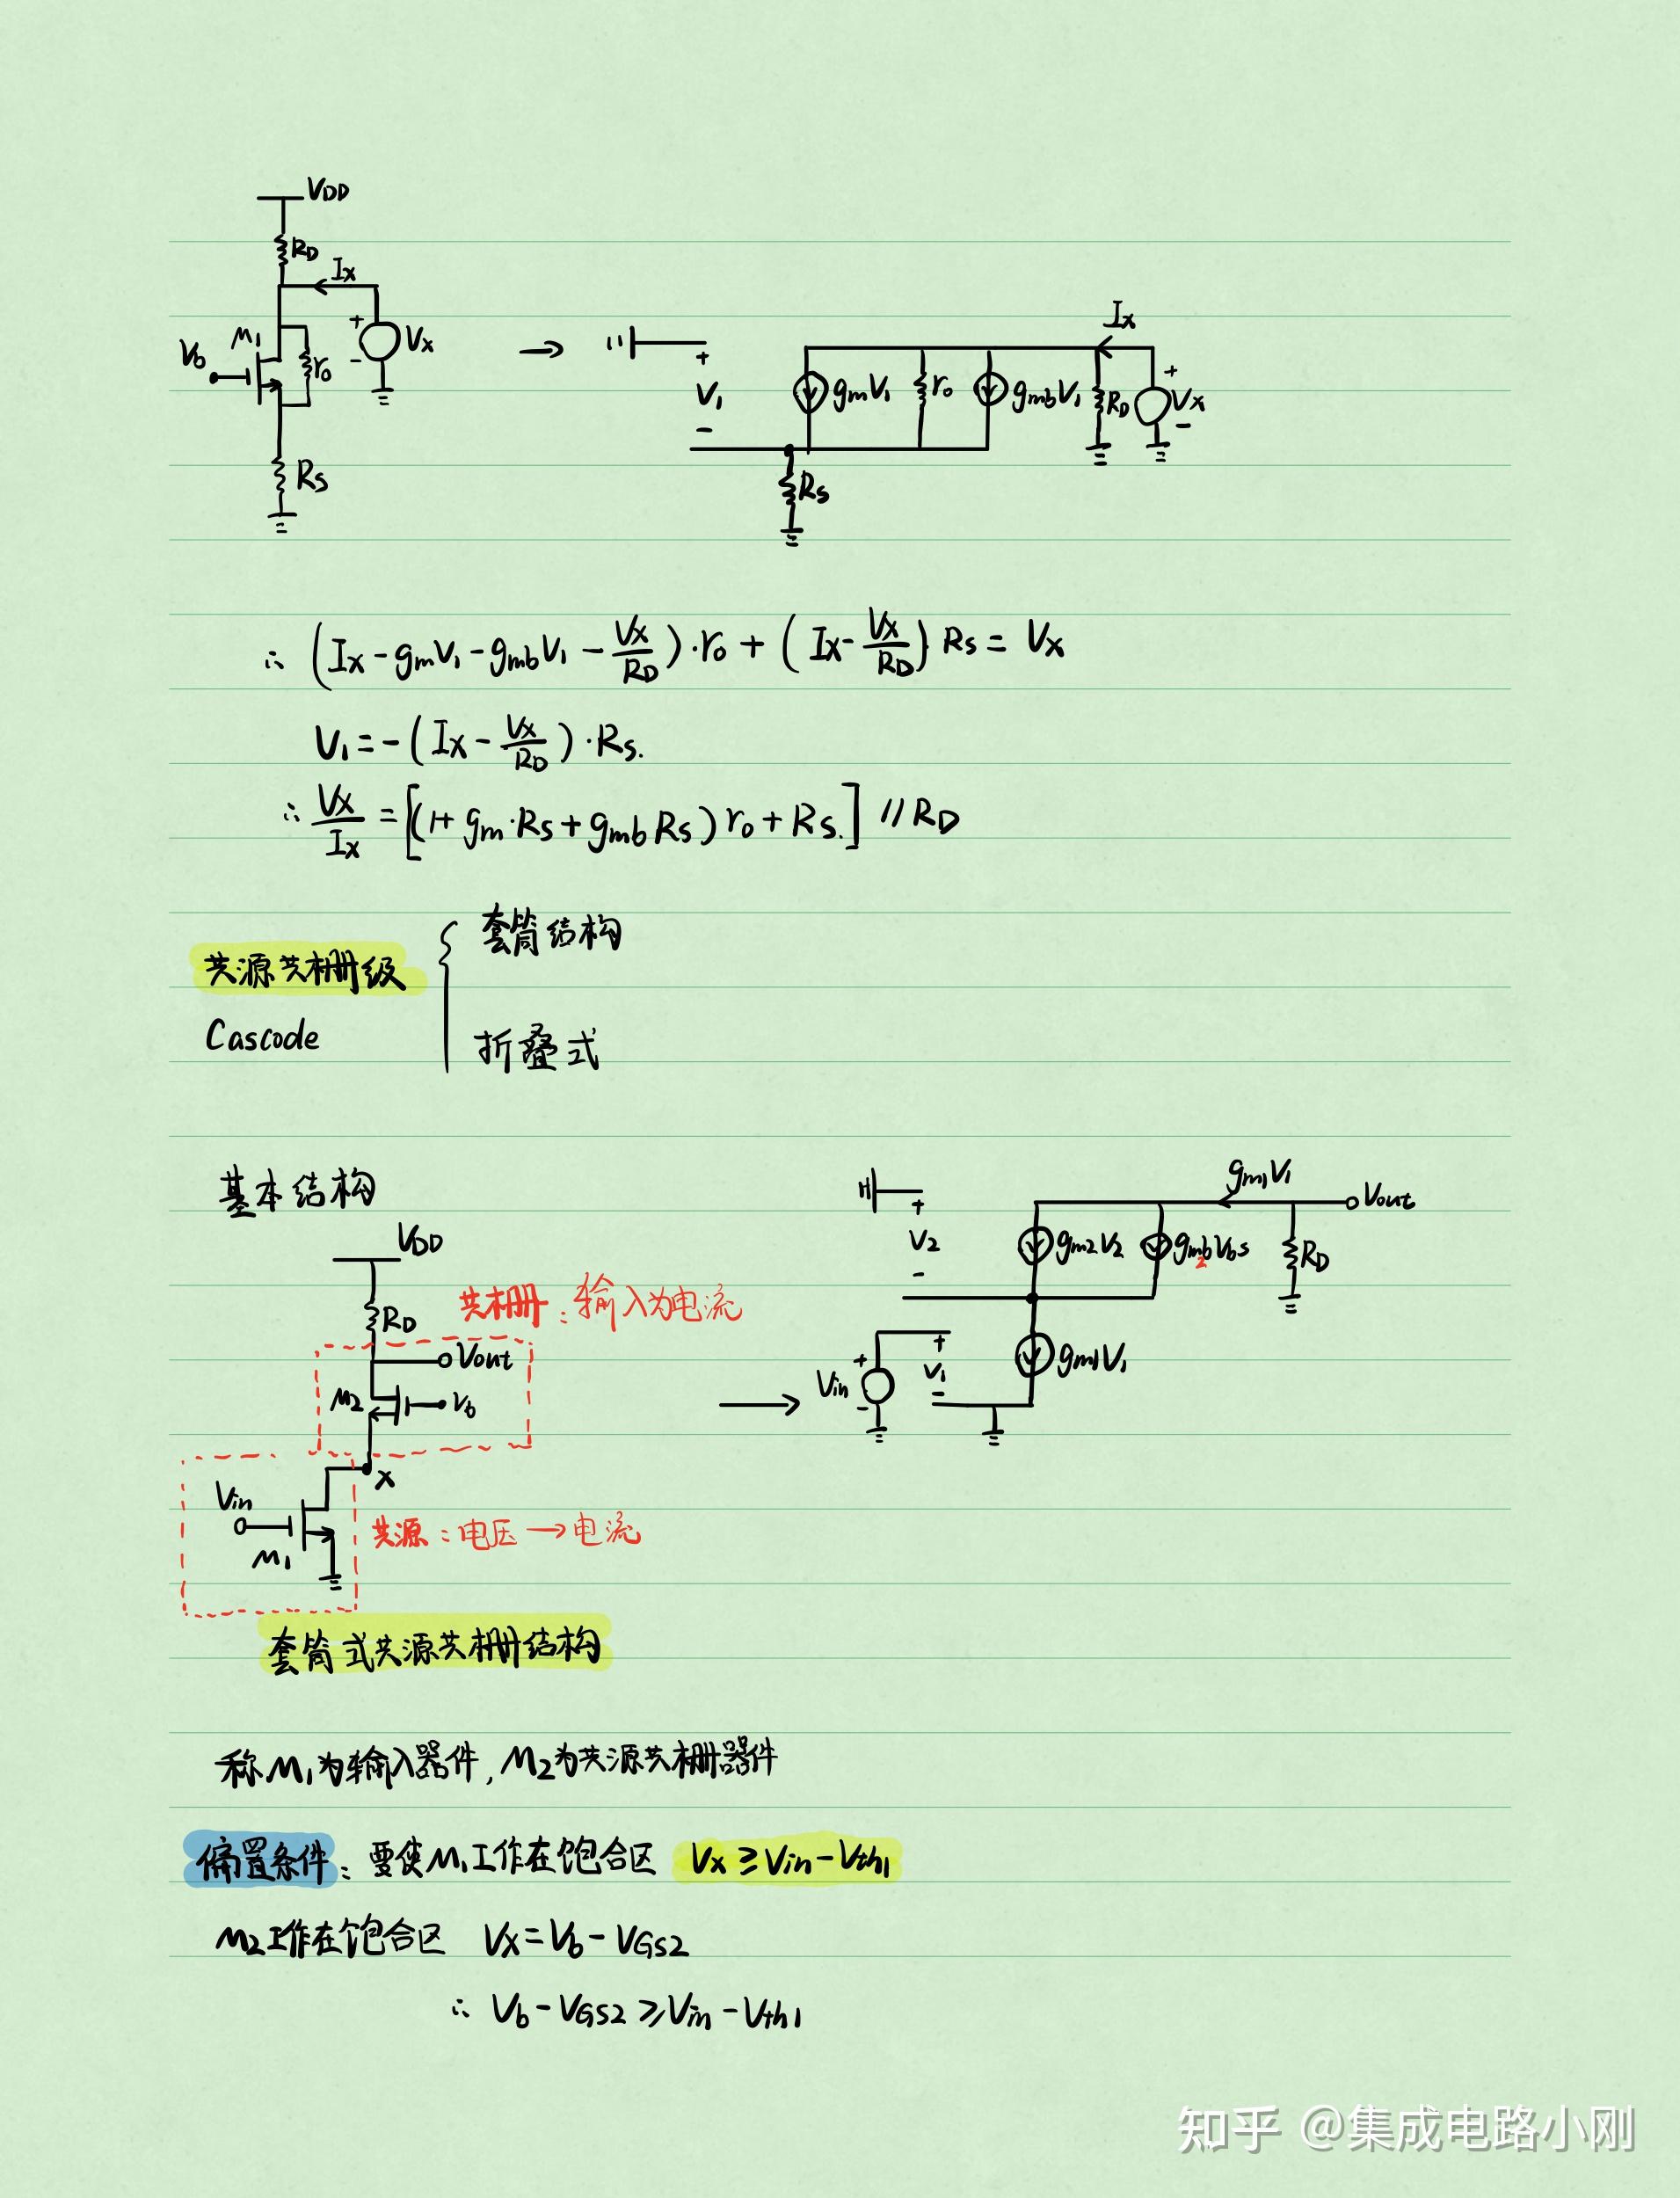 VDD
RD
Ix
M1
Vb
r0
+
-
Vx
Rs
→
+
V1
-
gmV1
r0
gmbV1
RD
Ix
+
Vx
-
Rs
∴ (Ix - gmV1 - gmbV1 - Vx/RD)·r0 + (Ix - Vx/RD) Rs = Vx
V1 = -(Ix - Vx/RD)·Rs.
∴ Vx/Ix = [(1+ gm·Rs + gmb Rs) r0 + Rs.] // RD
共源共栅级
Cascode
{ 套筒结构
折叠式
基本结构
VDD
RD
共栅：输入为电流
Vout
M2
Vb
X
Vin
M1
共源：电压→电流
→
+
V2
-
gm2V2
gmb2Vbs
gm1V1
Vout
RD
Vin
+
-
+
V1
-
gm1V1
套筒式共源共栅结构
称M1为输入器件, M2为共源共栅器件
偏置条件：要使M1工作在饱合区 Vx ≥ Vin - Vth1
M2工作在饱合区 Vx = Vb - VGS2
∴ Vb - VGS2 ≥ Vin - Vth1
知乎 @集成电路小刚